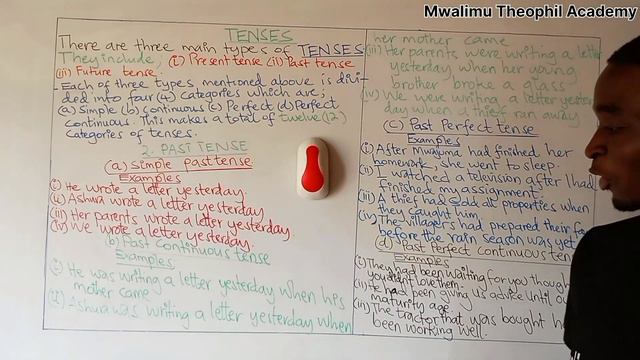 Mwalimu Theophil Academy
TENSES
There are three main types of TENSES
They include, (i) Present tense (ii) Past tense
(iii) Future tense.
- Each of three types mentioned above is divi-
ded into four (4) categories which are;
(a) Simple (b) Continuous (c) Perfect (d) Perfect
Continuous. This makes a total of twelve (12)
Categories of tenses.
2. PAST TENSE
(a) Simple past tense
Examples
i) He wrote a letter yesterday.
ii) Ashura wrote a letter yesterday
iii) Her parents wrote a letter yesterday
iv) We wrote a letter yesterday.
b) Past continuous tense
Examples
i) He was writing a letter yesterday when his
mother came
ii) Ashura was writing a letter yesterday when
her mother came
(iii) Her parents were writing a letter
yesterday, when her young
brother broke a glass
iv) We were writing a letter yester
day when a thief ran away
(c) Past Perfect tense
Examples
i) After Mwajuma had finished her
homework, she went to sleep.
ii) I watched a television after I had
finished my assignment.
iii) A thief had sold all properties when
they caught him
iv) The villagers had prepared their
before the rain season was yet
(d) Past Perfect continuous ten
Examples
i) They had been waiting for you though
you didn't love them.
ii) He had been giving us advice until
maturity age
iii) The tractor that was bought
been working well.